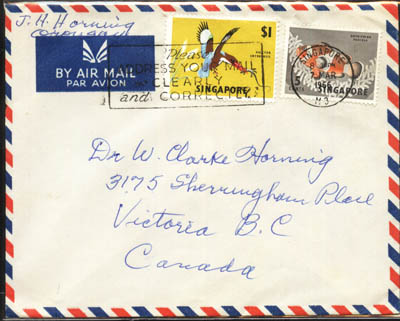 J. H. Horning
BY AIR MAIL
PAR AVION
Please
ADDRESS YOUR MAIL
CLEARLY
and CORRECTLY
$1
SINGAPORE
SINGAPORE
MAR
5
CENTS
SINGAPORE
Dr W. Clarke Horning
3175 Sherringham Place
Victoria B. C
Canada